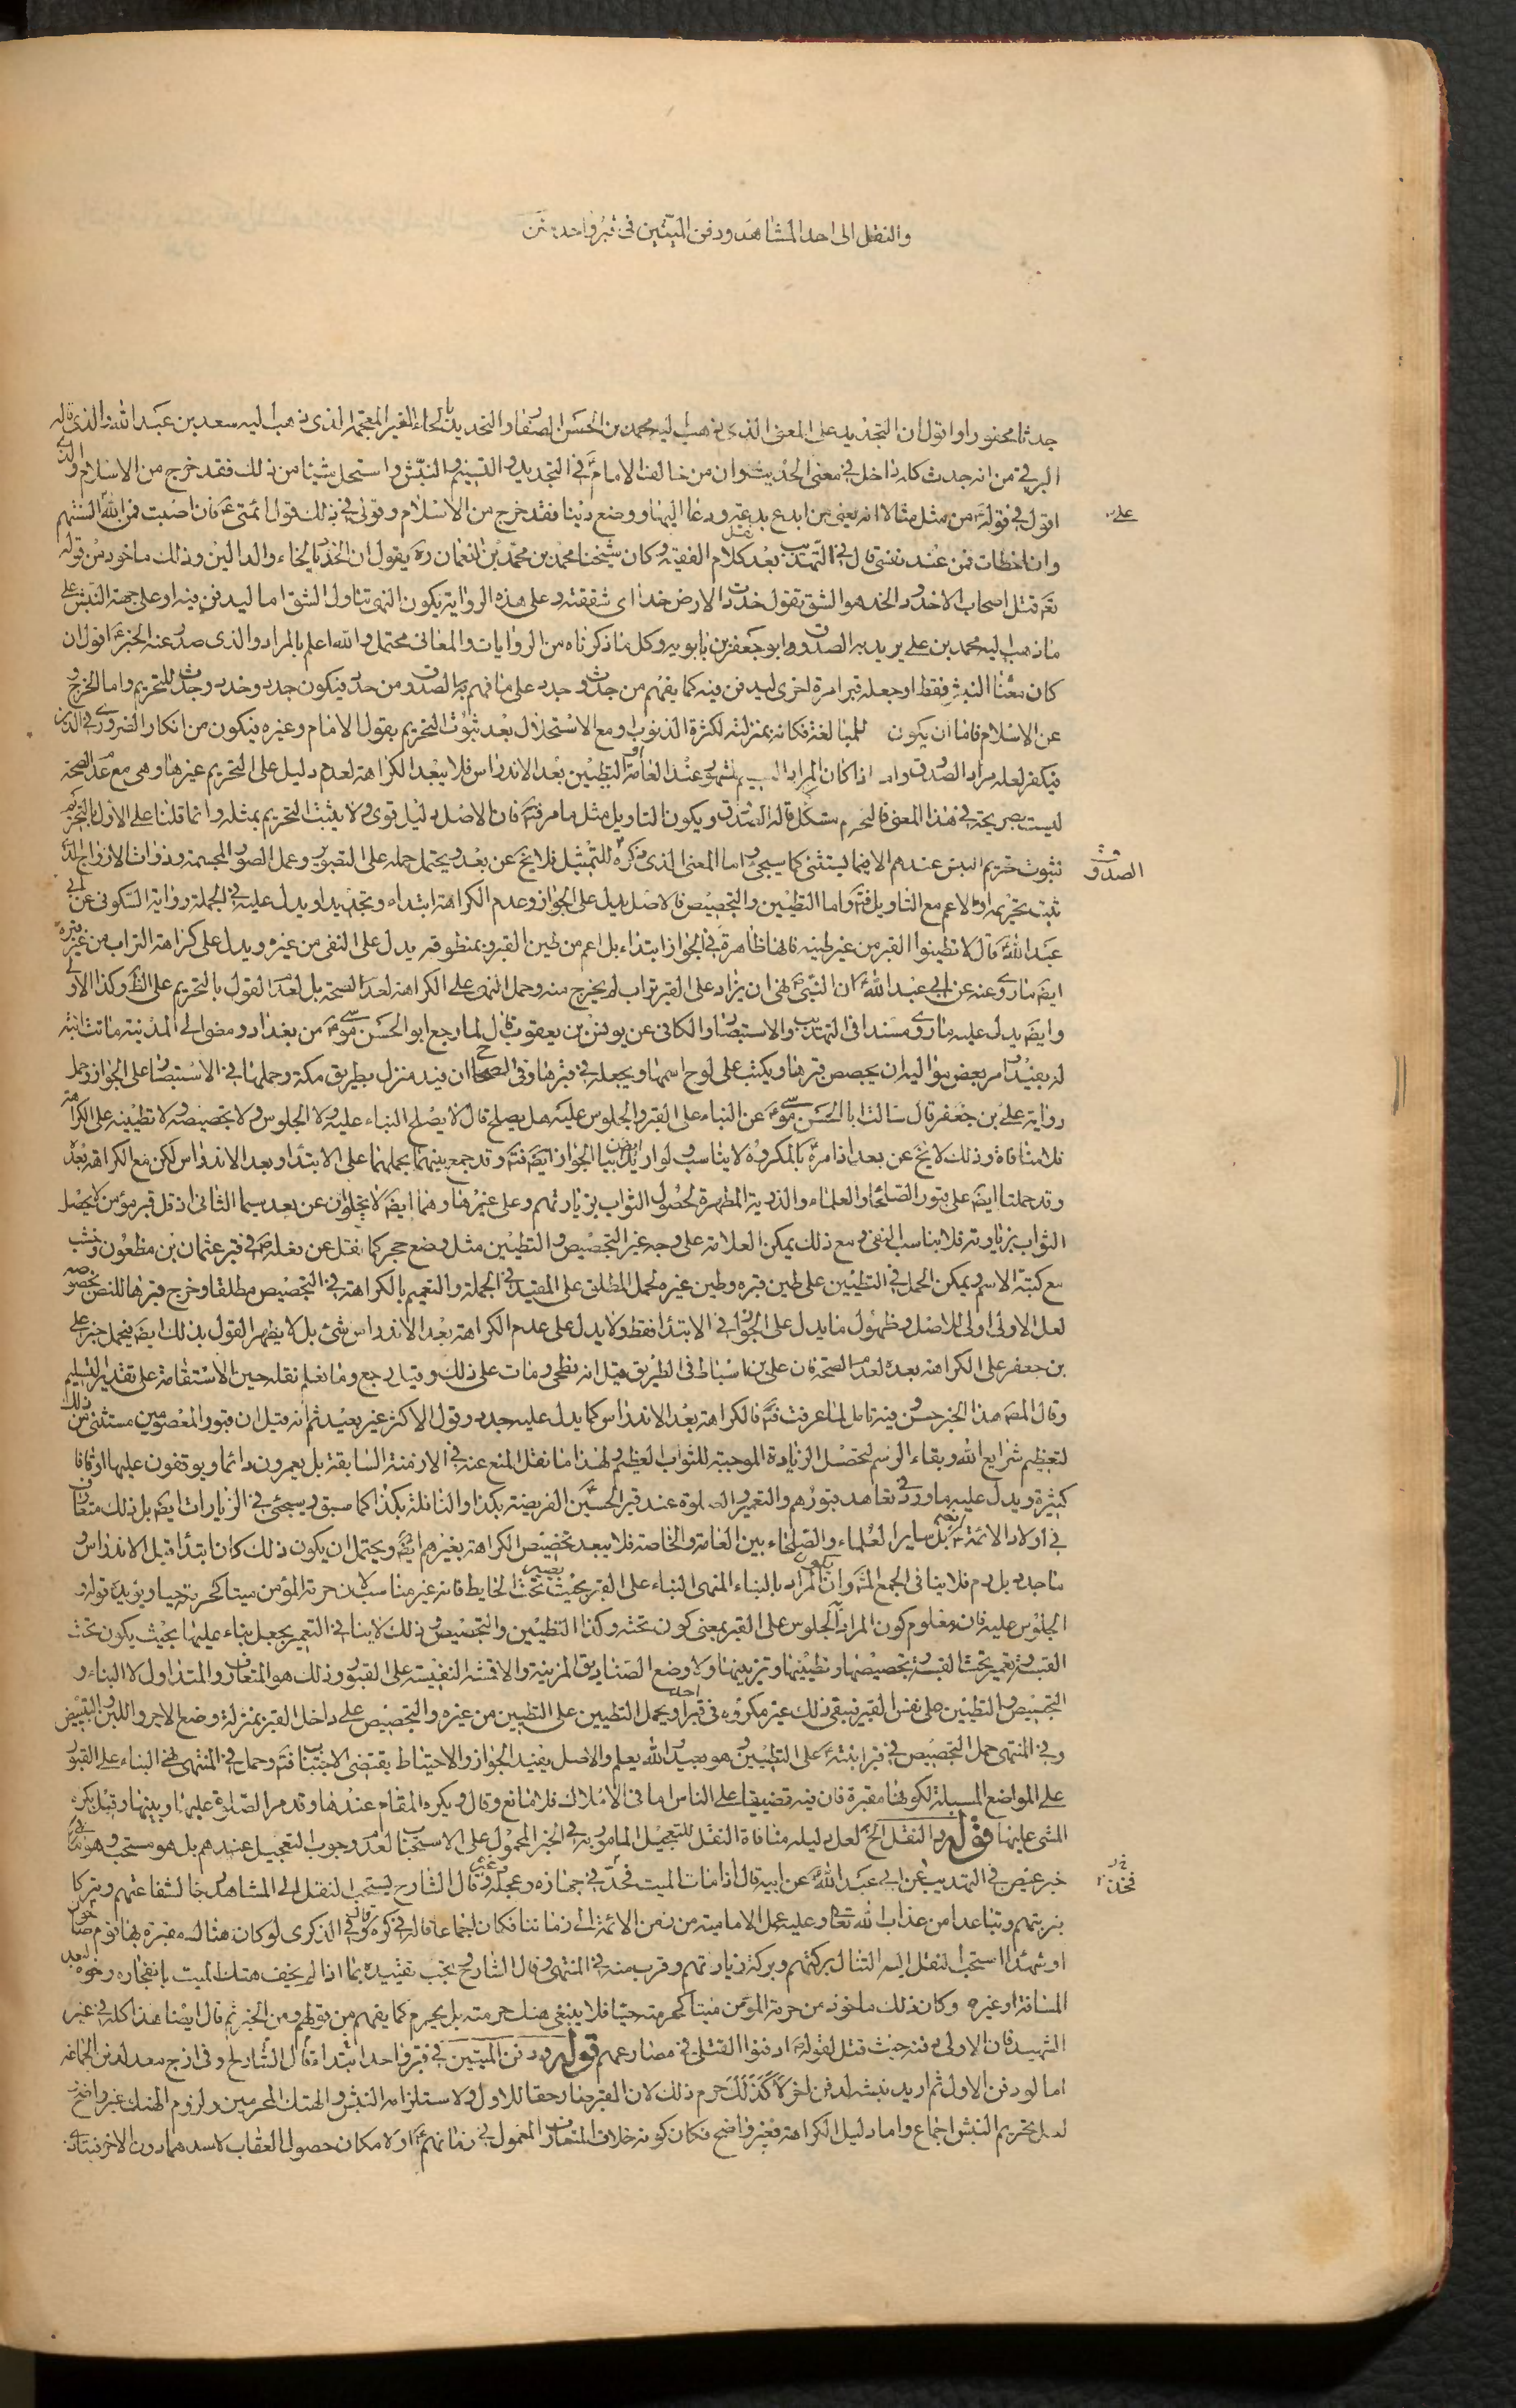 والنقل الى احد المشاهد ودفن الميتين فى قبر واحد
جدثا محفورا واقول ان التجديد على المعنى الذى ذهب اليه محمد بن الحسن الصفار والتحديد بالحاء الغير المعجمة الذى ذهب اليه سعد بن عبد الله والذى قاله
البرقى من انه جدث كله داخل فى معنى الحديث وان من خالف الامام فى التجديد والتسنيم والنبش واستحل شيئا من ذلك فقد خرج من الاسلام والذى
اقول فى قوله من مثل مثالا انه يعنى من ابدع بدعة ودعا اليها او وضع دينا فقد خرج من الاسلام وقولى فى ذلك قول ائمتى فان اصبت فمن الله على السنتهم
وان اخطات فمن عند نفسى قال فى التهذيب بعد نقل كلام الفقيه وكان شيخنا محمد بن محمد بن النعمان ره يقول ان الخبر بالخاء والدالين وذلك ماخوذ من قوله
تع قتل اصحاب الاخدود والخد هو الشق تقول خددت الارض خدا اى شققته وعلى هذه الرواية يكون النهى تناول الشق اما ليدفن فيه او على جهة النبش على
ما ذهب اليه محمد بن على يريد به الصدوق وابو جعفر بن بابويه وكل ما ذكرناه من الروايات والمعانى محتمل والله اعلم بالمراد والذى صدر عنه الخبر اقول ان
كان معنا النبش فقط او جعله قبرا مرة اخرى ليدفن فيه كما يفهم من جدث وجدد على ما فهم الصدوق من حدد فيكون جدد وخدد وجدث للتحريم واما الخروج
عن الاسلام فاما ان يكون للمبالغة فكانه بمنزلته لكثرة الذنوب ومع الاستحلال بعد ثبوت التحريم بقول الامام وغيره فيكون من انكار الضرورى فى الدين
فيكفر لعله مراد الصدوق واذا كان المراد التسنيم المشهور عند العامة والتطيين بعد الاندراس فلا يبعد الكراهة لعدم دليل على التحريم غيرها وهى مع عدم الصحة
ليست بصريحة فى هذا المعنى فالتحريم مشكل قاله الصدوق ويكون التاويل مثل ما مر فتم فان الاصل دليل قوى ولا يثبت التحريم بمثله وانما قلنا على الاول بالتحريم
لثبوت تحريم النبش عندهم الا فيما يستثنى كما سيجئ واما المعنى الذى ذكره الصدوق للتمثيل فلا يخ عن بعد ويحتمل حمله على التصوير وعمل الصور المجسمة وذوات الارواح الذى
ثبت تحريمه او الاعم مع التاويل فتم واما التطيين والتجصيص فالاصل يدل على الجواز وعدم الكراهة ابتداء وتجديدا ويدل عليه فى الجملة رواية السكونى عن ابى
عبد الله قال لا تطينوا القبر من غير طينه فانها ظاهرة فى الجواز ابتداء بل اعم من طين القبر وبمنطوقه يدل على النهى من غيره ويدل على كراهة التراب من غير قبره
ايضا ما روى عنه عن ابى عبد الله ان النبى نهى ان يزاد على القبر تراب لم يخرج منه وحمل النهى على الكراهة لعدم الصحة بل لعدم القول بالتحريم على الظ وكذا الاولى
وايض يدل عليه ما روى مسندا فى التهذيب والاستبصار والكافى عن يونس بن يعقوب قال لما رجع ابو الحسن موسى من بغداد ومضى الى المدينة ماتت ابنة
له بفيد امر بعض مواليه ان يجصص قبرها ويكتب على لوح اسمها ويجعله فى قبرها وفى الصحاح ان فيد منزل بطريق مكة وحملها فى الاستبصار على الجواز وحمل
رواية على بن جعفر قال سالت ابا الحسن موسى عن البناء على القبر والجلوس عليه هل يصلح قال لا يصلح البناء عليه ولا الجلوس ولا تجصيصه ولا تطيينه على الكراهة
فلا منافاة وذلك لا يخ عن بعد اذ امره بالمكروه لا يناسب ولو اريد بيان الجواز ايض فتم وقد جمع بينهما بحملهما على الابتداء وبعد الاندراس لكن مع الكراهة بعده
وقد حملتا ايض على قبور الصلحاء والعلماء والذرية المطهرة لحصول الثواب بزيارتهم وعلى غيرها وهما ايض لا يخلوان عن بعد سيما الثانى اذ قل قبر مؤمن لا يحصل
الثواب بزيارته فلا يناسب النهى مع ذلك يمكن العلامة على وجه غير التجصيص والتطيين مثل وضع حجر كما نقل عن فعله فى قبر عثمان بن مظعون وخشب
مع كتبة الاسم ويمكن الحمل فى التطيين على طين قبره وطين غيره لحمل المطلق على المقيد فى الجملة والتعميم بالكراهة فى التجصيص مطلقا وخرج قبرها للنص بخصوصه
لعل الاولى اولى للاصل وظهور ما يدل على الجواز فى الابتداء فقط ولا يدل على عدم الكراهة بعد الاندراس شئ بل لا يظهر القول بذلك ايض فيحمل خبر على
بن جعفر على الكراهة بعده لعدم الصحة فان على بن اسباط فى الطريق قيل انه فطحى ومات على ذلك وقيل رجع وما نعلم نقله حين الاستقامة على تقدير التسليم
وقال المص هذا الخبر حسن وفيه تامل لما عرفت فتم فالكراهة بعد الاندراس كما يدل عليه جدد وقول الاكثر غير بعيد ثم انه قيل ان قبور المعصومين مستثنى من ذلك
لتعظيم شرايع الله وبقاء الرسم لتحصل الزيادة الموجبة للثواب العظيم ولهذا ما نقل المنع عنه فى الازمنة السابقة بل يعمرون دائما ويوقفون عليها اوقافا
كثيرة ويدل عليه ما ورد فى تعاهد قبورهم والتعمير والصلوة عند قبر الحسين الفريضة بكذا والنافلة بكذا كما سبق وسيجئ فى الزيارات ايض بل ذلك متعارف
فى اولاد الائمة بل سائر العلماء والصلحاء بين العامة والخاصة فلا يبعد تخصيص الكراهة بغيرهم ايض ويحتمل ان يكون ذلك كان ابتداء قبل الاندراس و
ما جدد بل رم فلا ينافى الجمع المتقدم وان يكون المراد بالبناء المنهى البناء على القبر بحيث يصير تحت الحايط فانه غير مناسب لان حرمة المؤمن ميتا كحرمته حيا ويؤيده قوله و
الجلوس عليه فان معلوم كون المراد الجلوس على القبر بمعنى كون تحته وكذا التطيين والتجصيص وذلك لا ينافى التعمير بجعل بناء عليها بحيث يكون تحت
القبة وتعمير تحت القبة وتجصيصها وتطيينها وتزيينها ولا وضع الصناديق المزينة والاقمشة النفيسة على القبور وذلك هو المتعارف والمتداول لا البناء و
التجصيص والتطيين على نفس القبر فيبقى ذلك غير مكروه فى قبر احد ويحمل التطيين على التطيين من غيره والتجصيص على داخل القبر بمنزلة وضع الاجر واللبن والتبييض
وفى المنتهى حمل التجصيص فى قبر ابنته على التطيين وهو بعيد الله يعلم والاصل يفيد الجواز والاحتياط يقتضى الاجتناب فتم وحمل فى المنتهى نهى البناء على القبور
على المواضع المسبلة لكونها مقبرة فان فيه تضييقا على الناس اما فى الاملاك فلا مانع وقال ويكره المقام عندها وقد مر الصلوة عليها وبينها وقيل بكره
المشى عليها قوله والنقل الخ لعل دليله منافاة النقل للتعجيل المامور به فى الخبر المحمول على الاستحباب لعدم وجوب التعجيل عندهم بل هو مستحب وهو ما فى
خبر عيص فى التهذيب عن ابى عبد الله عن ابيه قال اذا مات الميت فخذ فى جهازه وعجله وقال الشارح يستحب النقل الى المشاهد رجاء لشفاعتهم وتبركا
بتربتهم وتباعدا من عذاب الله تعالى وعليه عمل الامامية من زمن الائمة الى زماننا فكان اجماعا قاله فى كره وقال فى الذكرى لو كان هناك مقبرة بها قوم صالحون
او شهداء استحب النقل اليه لتناله بركتهم وبركة زيارتهم وقرب منه فى المنتهى وقال الشارح يجب تقييده بما اذا لم يخف هتك الميت بانفجاره ونحوه لبعد
المسافة او غيره وكان ذلك ماخوذ من حرمة المؤمن ميتا كحرمته حيا فلا ينبغى هتك حرمته بل يحرم كما يفهم من قولهم ومن الخبر ثم قال ايضا هذا كله فى غير
الشهيد فان الاولى دفنه حيث قتل لقوله ادفنوا القتلى فى مصارعهم قوله ودفن الميتين فى قبر واحد ابتداء قال الشارح وفى ازج معد لدفن الجماعة
اما لو دفن الاول ثم اريد نبشه لدفن اخر لا كذلك حرم ذلك لان القبر صار حقا للاول ولاستلزامه النبش والهتك المحرمين ولزوم الهتك غير واضح
لعل تحريم النبش اجماع واما دليل الكراهة فغير واضح فكان كونه خلاف المتعارف المعمول فى زمانهم او لامكان حصول العقاب لاحدهما دون الاخر فيتأذى